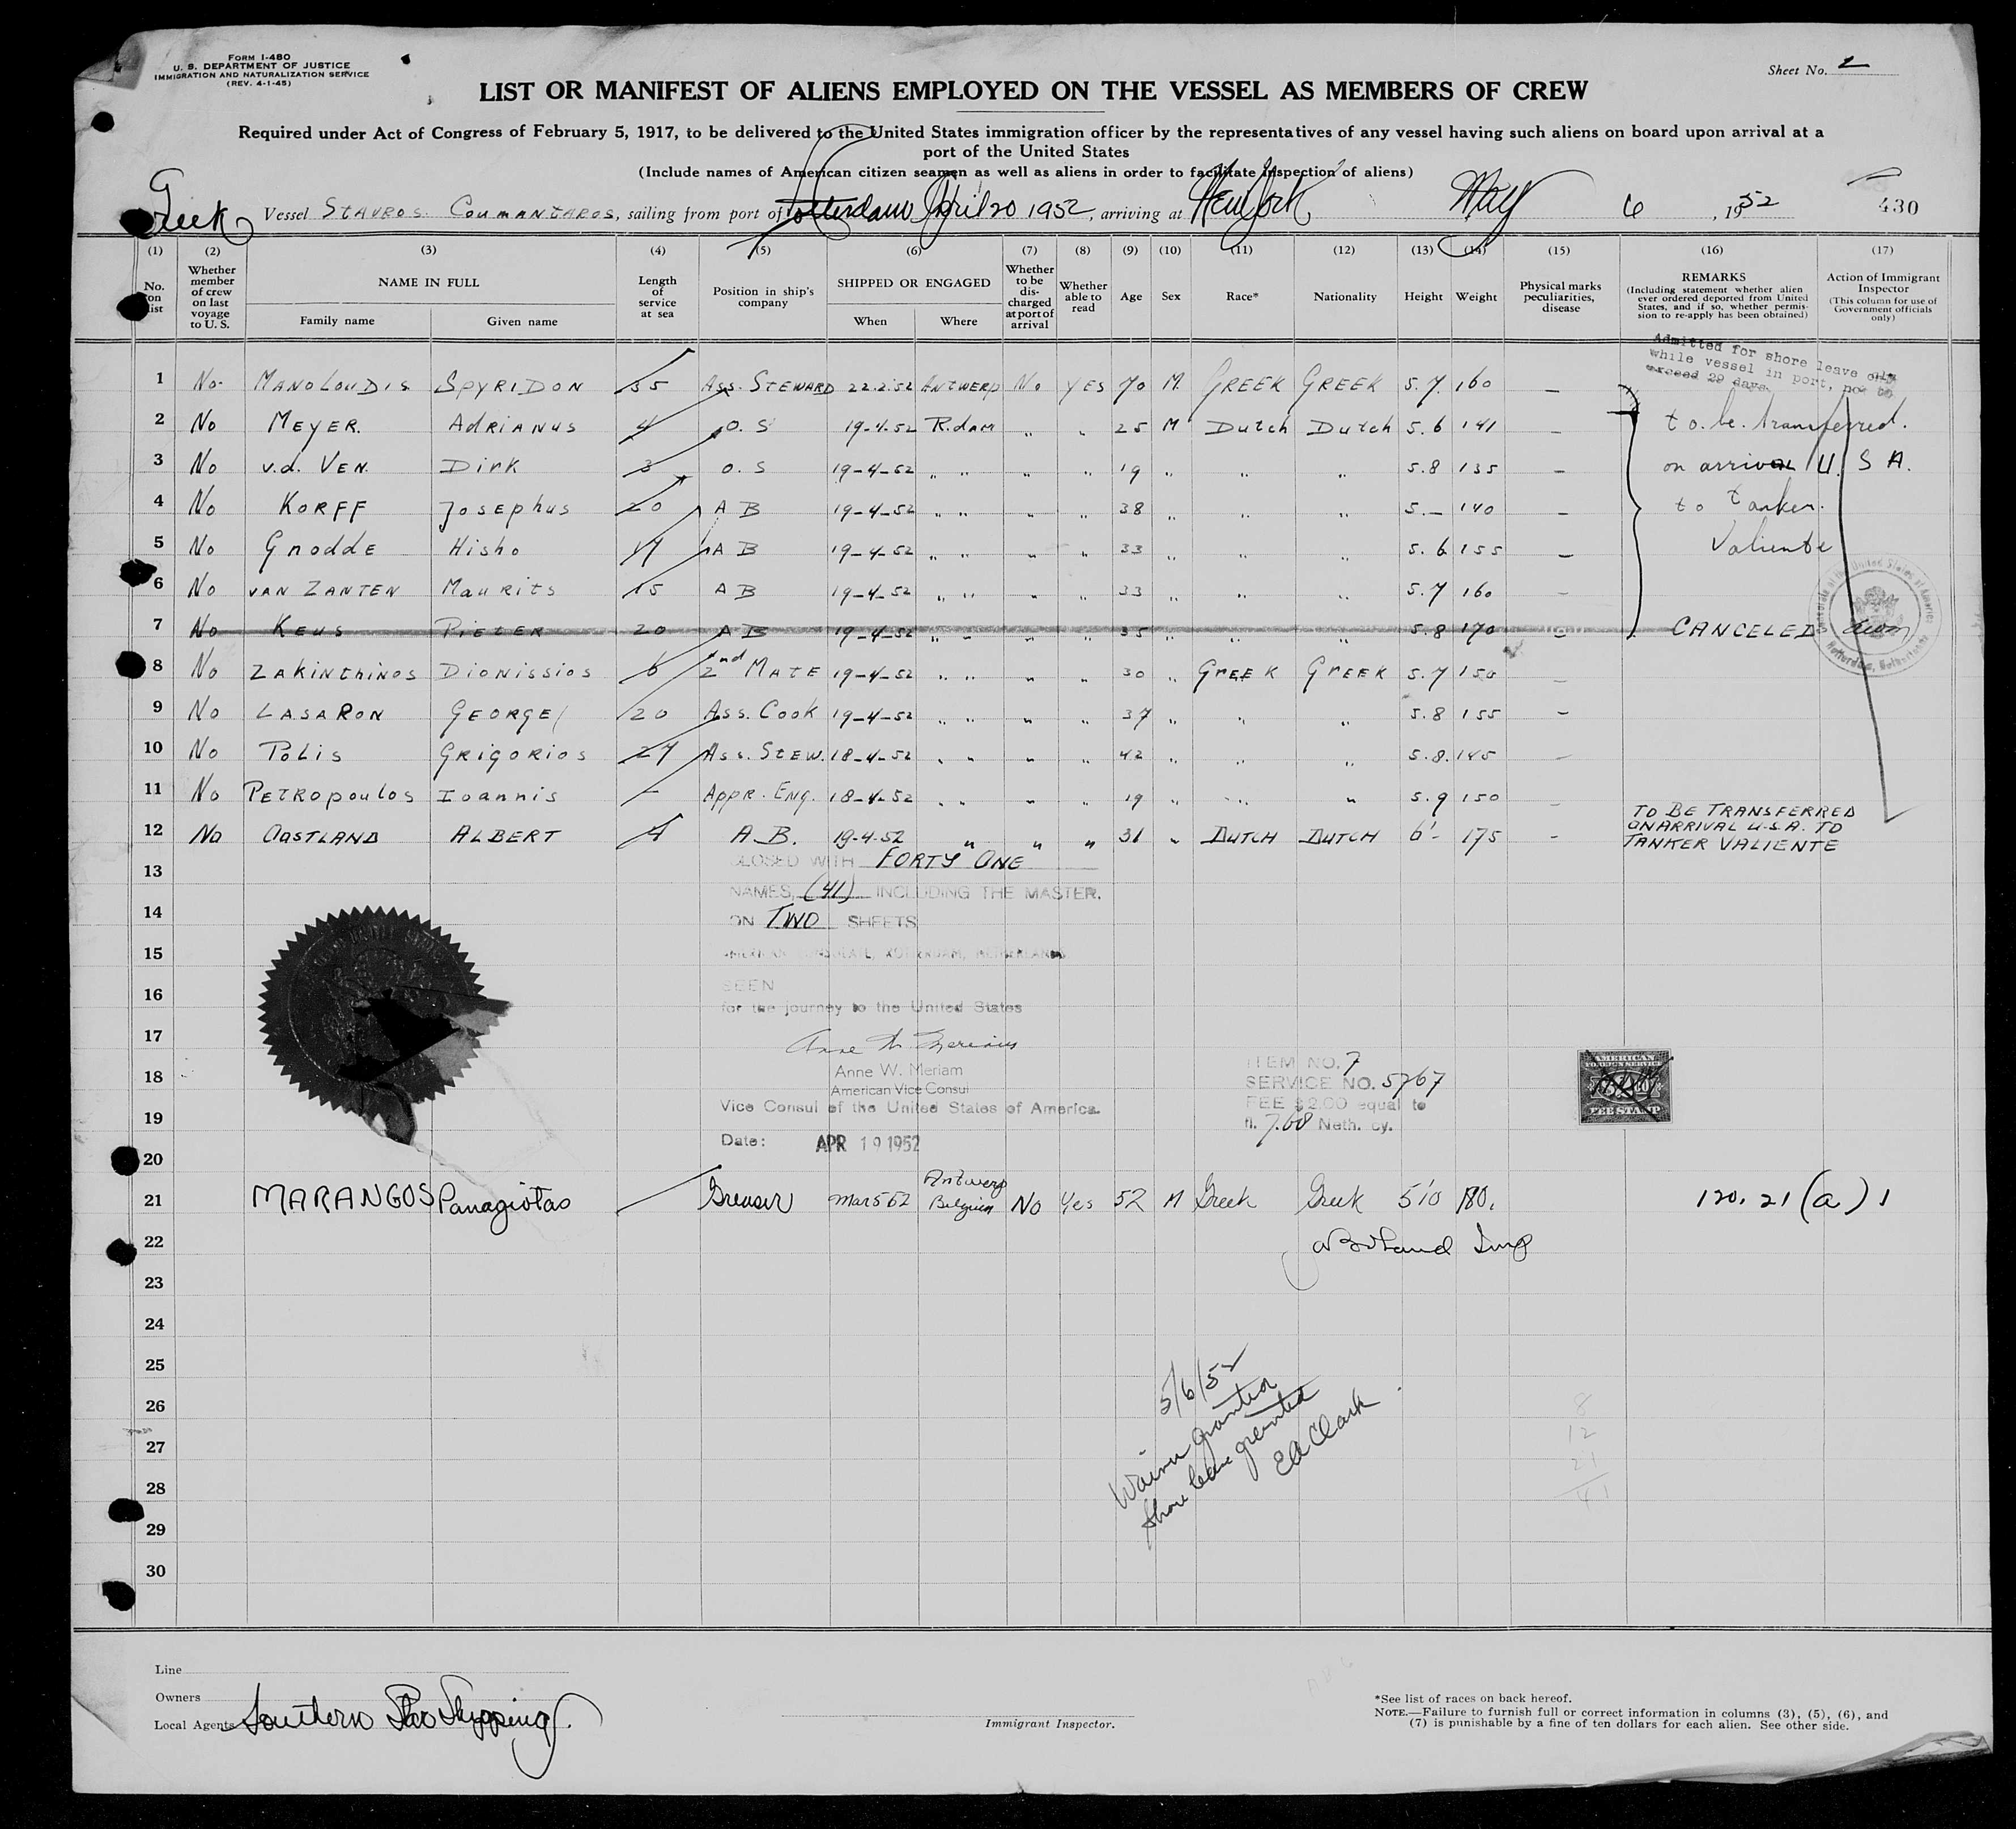 FORM I-480
U. S. DEPARTMENT OF JUSTICE
IMMIGRATION AND NATURALIZATION SERVICE
(REV. 4-1-45)
Sheet No. 2
LIST OR MANIFEST OF ALIENS EMPLOYED ON THE VESSEL AS MEMBERS OF CREW
Required under Act of Congress of February 5, 1917, to be delivered to the United States immigration officer by the representatives of any vessel having such aliens on board upon arrival at a
port of the United States
(Include names of American citizen seamen as well as aliens in order to facilitate inspection of aliens)
Greek Vessel STAVROS COUMANTAROS, sailing from port of Rotterdam April 20 1952, arriving at New York May 6, 1952 430
(1) (2) (3) (4) (5) (6) (7) (8) (9) (10) (11) (12) (13) (14) (15) (16) (17)
No. on list
Whether member of crew on last voyage to U. S.
NAME IN FULL
Family name Given name
Length of service at sea
Position in ship's company
SHIPPED OR ENGAGED
When Where
Whether to be discharged at port of arrival
Whether able to read
Age
Sex
Race*
Nationality
Height
Weight
Physical marks peculiarities, disease
REMARKS
(Including statement whether alien ever ordered deported from United States, and if so, whether permission to re-apply has been obtained)
Action of Immigrant Inspector
(This column for use of Government officials only)
Admitted for shore leave only
while vessel in port, not to
exceed 29 days
1 No. MANOLOUDIS SPYRIDON 35 Ass. STEWARD 22.2.52 ANTWERP No YES 70 M. GREEK GREEK 5.7. 160 —
2 No MEYER. ADRIANUS 4 O. S 19-4-52 R.dam " " 25 M Dutch Dutch 5.6 141 — to. be. transferred.
3 No v.d. VEN. Dirk 3 O. S 19-4-52 " " " " 19 " " " 5.8 135 — on arrival U. S A.
4 No KORFF Josephus 20 A B 19-4-52 " " " " 38 " " " 5.— 140 — to tanker.
5 No Gnodde Hisho 17 A B 19-4-52 " " " " 33 " " " 5.6 155 — Valiente
6 No VAN ZANTEN Maurits 15 A B 19-4-52 " " " " 33 " " " 5.7 160 —
7 No KEUS PIETER 20 A B 19-4-52 " " " " 35 " " " 5.8 170 — CANCELED
8 No ZAKINTHINOS DIONISSIOS 6 2nd MATE 19-4-52 " " " " 30 " GREEK GREEK 5.7 150 —
9 No LASARON GEORGE 20 Ass. Cook 19-4-52 " " " " 37 " " " 5.8 155 —
10 No POLIS GRIGORIOS 27 Ass. STEW. 18-4-52 " " " " 42 " " " 5.8. 145 —
11 No PETROPOULOS IOANNIS — APPR. ENG. 18-4-52 " " " " 19 " " " 5.9 150 —
12 No OOSTLAND ALBERT 4 A.B. 19-4-52 " " " 31 " DUTCH DUTCH 6'- 175 — TO BE TRANSFERRED
ON ARRIVAL U.S.A. TO
TANKER VALIENTE
13 CLOSED WITH FORTY ONE
NAMES, (41) INCLUDING THE MASTER.
14 ON TWO SHEETS
15 AMERICAN CONSULATE, ROTTERDAM, NETHERLANDS
16 SEEN
for the journey to the United States
17 Anne W. Meriam
18 Anne W. Meriam
American Vice Consul
19 Vice Consul of the United States of America.
Date: APR 19 1952
ITEM NO. 7
SERVICE NO. 5767
FEE $2.00 equal to
fl. 7.68 Neth. cy.
AMERICAN
FOREIGN SERVICE
FEE STAMP
20
21 MARANGOS Panagiotas — Greaser Mar 5 52 Antwerp Belgium No Yes 52 M Greek Greek 5'10 180. 120. 21 (a) 1
22
23
24
25
26
27
28
29
30
5/6/52
Waiver granted
Shore leave granted
EA Clark
8
12
21
41
Line
Owners
Local Agents Southern Star Shipping.
Immigrant Inspector.
*See list of races on back hereof.
NOTE.—Failure to furnish full or correct information in columns (3), (5), (6), and
(7) is punishable by a fine of ten dollars for each alien. See other side.